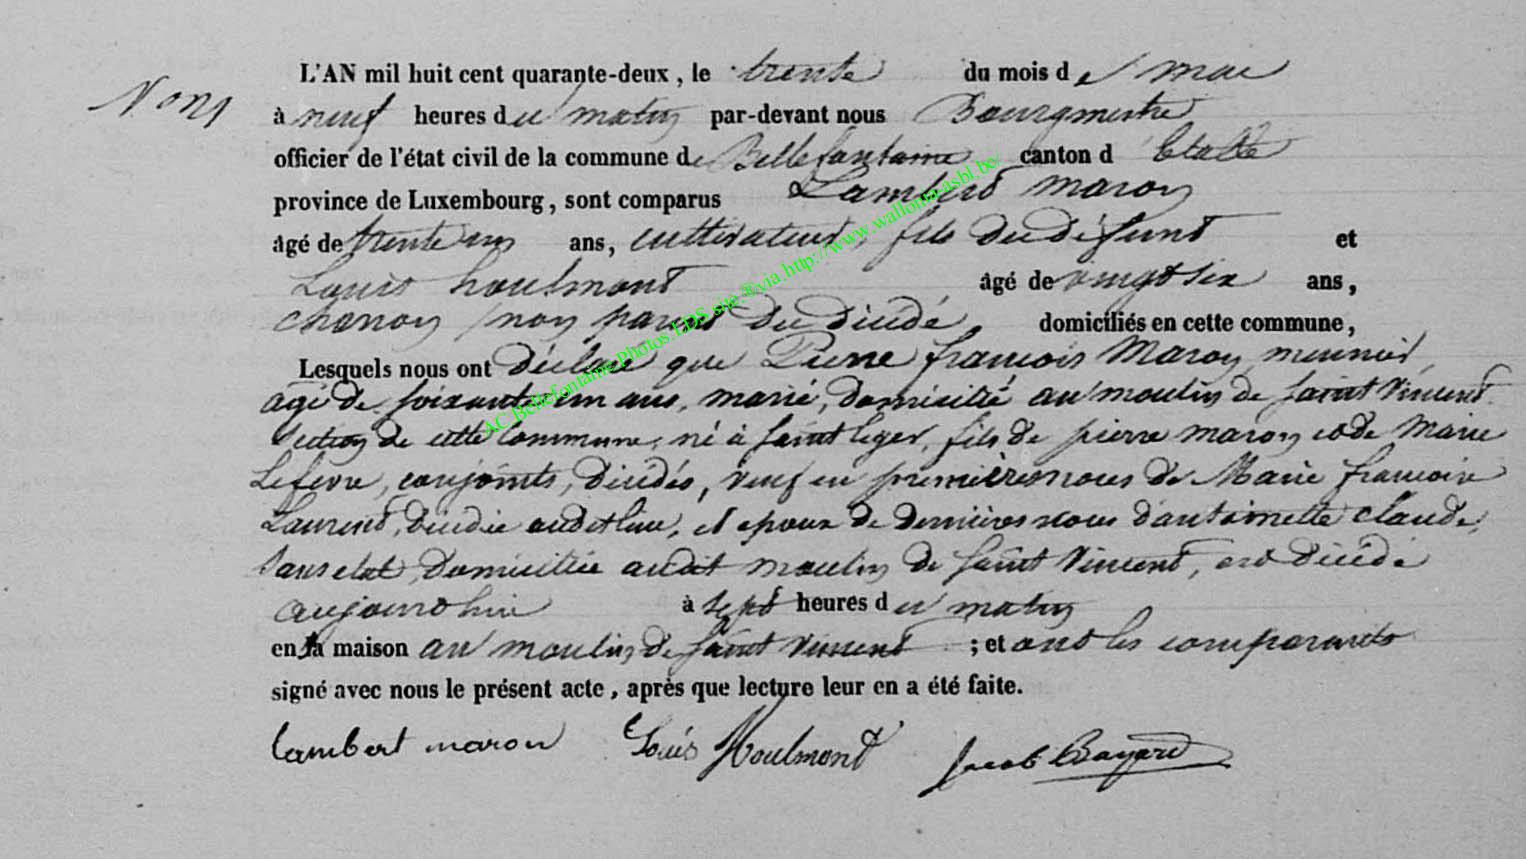 L'AN mil huit cent quarante-deux, le trente du mois de mai
à neuf heures du matin par-devant nous Bourgmestre
officier de l'état civil de la commune de Bellefontaine canton d' Etalle
province de Luxembourg, sont comparus Lambert maron
âgé de trente un ans, cultivateur, fils du défunt et
Louis houlmont âgé de vingt six ans,
non parent du décédé, domiciliés en cette commune,
Lesquels nous ont déclaré que Pierre francois Maron, meunier,
agé de soixante un ans, marié, domicilié au moulin de saint Vincent
section de cette commune, né à saint leger, fils de pierre maron et de Marie
Lefevre, conjoints, décédés, veuf en premières noces de Marie francoise
Laurent, décédée audit lieu, et epoux de dernières noces d'antoinette claude,
sans etat, domiciliée audit moulin de saint Vincent, est décédé
aujourd'hui à sept heures du matin
en sa maison au moulin de saint Vincent ; et ont les comparants
signé avec nous le présent acte, après que lecture leur en a été faite.
lambert maron Louis Houlmont Jacob
AC.Bellefontaine.Photos.LDS site.®via http://www.wallonia-asbl.be/